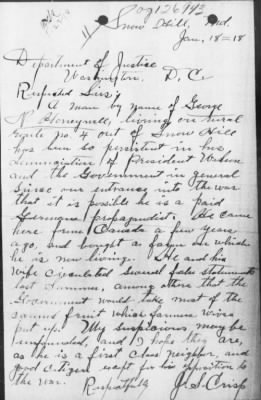 Og 126943
Snow Hill, Md.
Jan, 18=18
Department of Justice
Washington. D.C.
Respected Sirs:
A man by name of George
N Honeywell, living on rural
route No. 4 out of Snow Hill
has been so persistent in his
denunciation of President Wilson
and the Government in general
since our entrance into the war
that it is possible he is a paid
German propagandist. He came
here from Canada a few years
ago, and bought a farm on which
he is now living. He and his
wife circulated several false statements
last summer, among others that the
Government would take most of the
canned fruit which farmers wives
put up. My suspicions may be
unfounded, and I hope they are,
as he is a first class neighbor, and
good citizen except for his opposition to
the war. Respectfully
J.S. Crisp